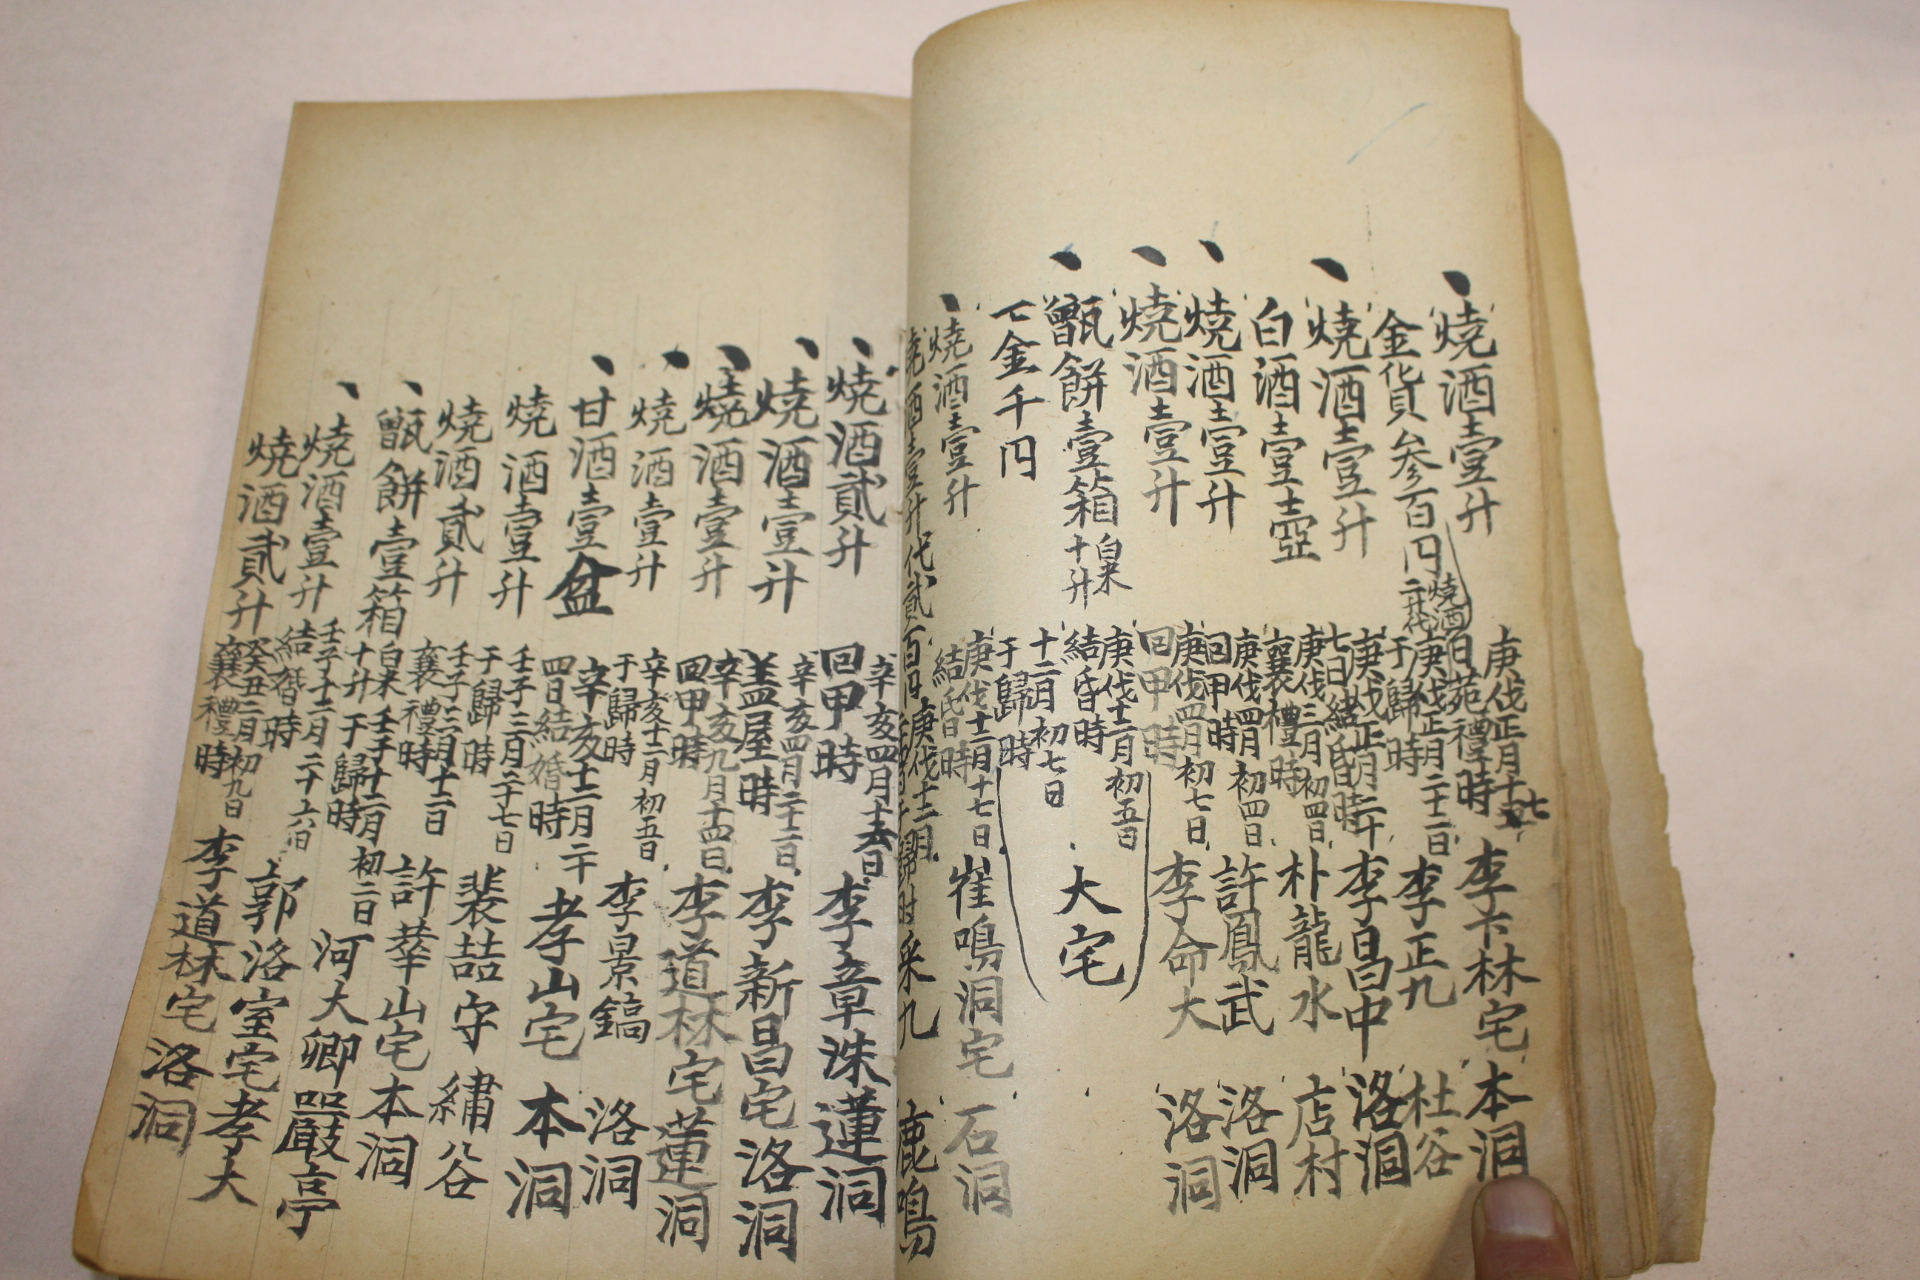 燒酒壹升 庚伐正月十七日 苑禮時 李卞林宅 本洞
金貨参百円 燒酒二升代 庚伐正月二十二日 于歸時 李正九 杜谷
燒酒壹升 庚伐正月二十七日 結昏時 李昌中 洛洞
白酒壹壺 庚伐三月初四日 襄禮時 朴龍水 店村
燒酒壹升 庚伐四月初四日 回甲時 許鳳武 洛洞
燒酒壹升 庚伐四月初七日 回甲時 李命大 洛洞
甑餠壹箱 白米十升 庚伐十二月初五日 結昏時 大宅
金千円 十二月初七日 于歸時
燒酒壹升 庚伐十二月十七日 結昏時 崔鳴洞宅 石洞
燒酒壹升代貳百円 庚伐十二月 于歸时 采九 鹿鳴
燒酒貳升 辛亥四月 回甲時 李章洙 蓮洞
燒酒壹升 辛亥四月二十二日 盖屋時 李新昌宅 洛洞
燒酒壹升 辛亥九月十四日 回甲時 李道林宅 蓮洞
燒酒壹升 辛亥十二月初五日 于歸時 李景鎬 洛洞
甘酒壹盆 辛亥十二月二十四日 結婚時 孝山宅 本洞
燒酒壹升 壬子三月二十七日 于歸時 裴喆守 繡谷
燒酒貳升 壬子三月十二日 襄禮時 許華山宅 本洞
甑餠壹箱 白米十升 壬子十二月初二日 于歸時 河大卿 嚴亭
燒酒壹升 壬子十二月二十六日 結婚時 郭洛室宅 孝大
燒酒貳升 癸丑二月初九日 襄禮時 李道林宅 洛洞